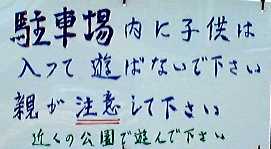 駐車場内に子供は
入って遊ばないで下さい
親が注意して下さい
近くの公園で遊んで下さい